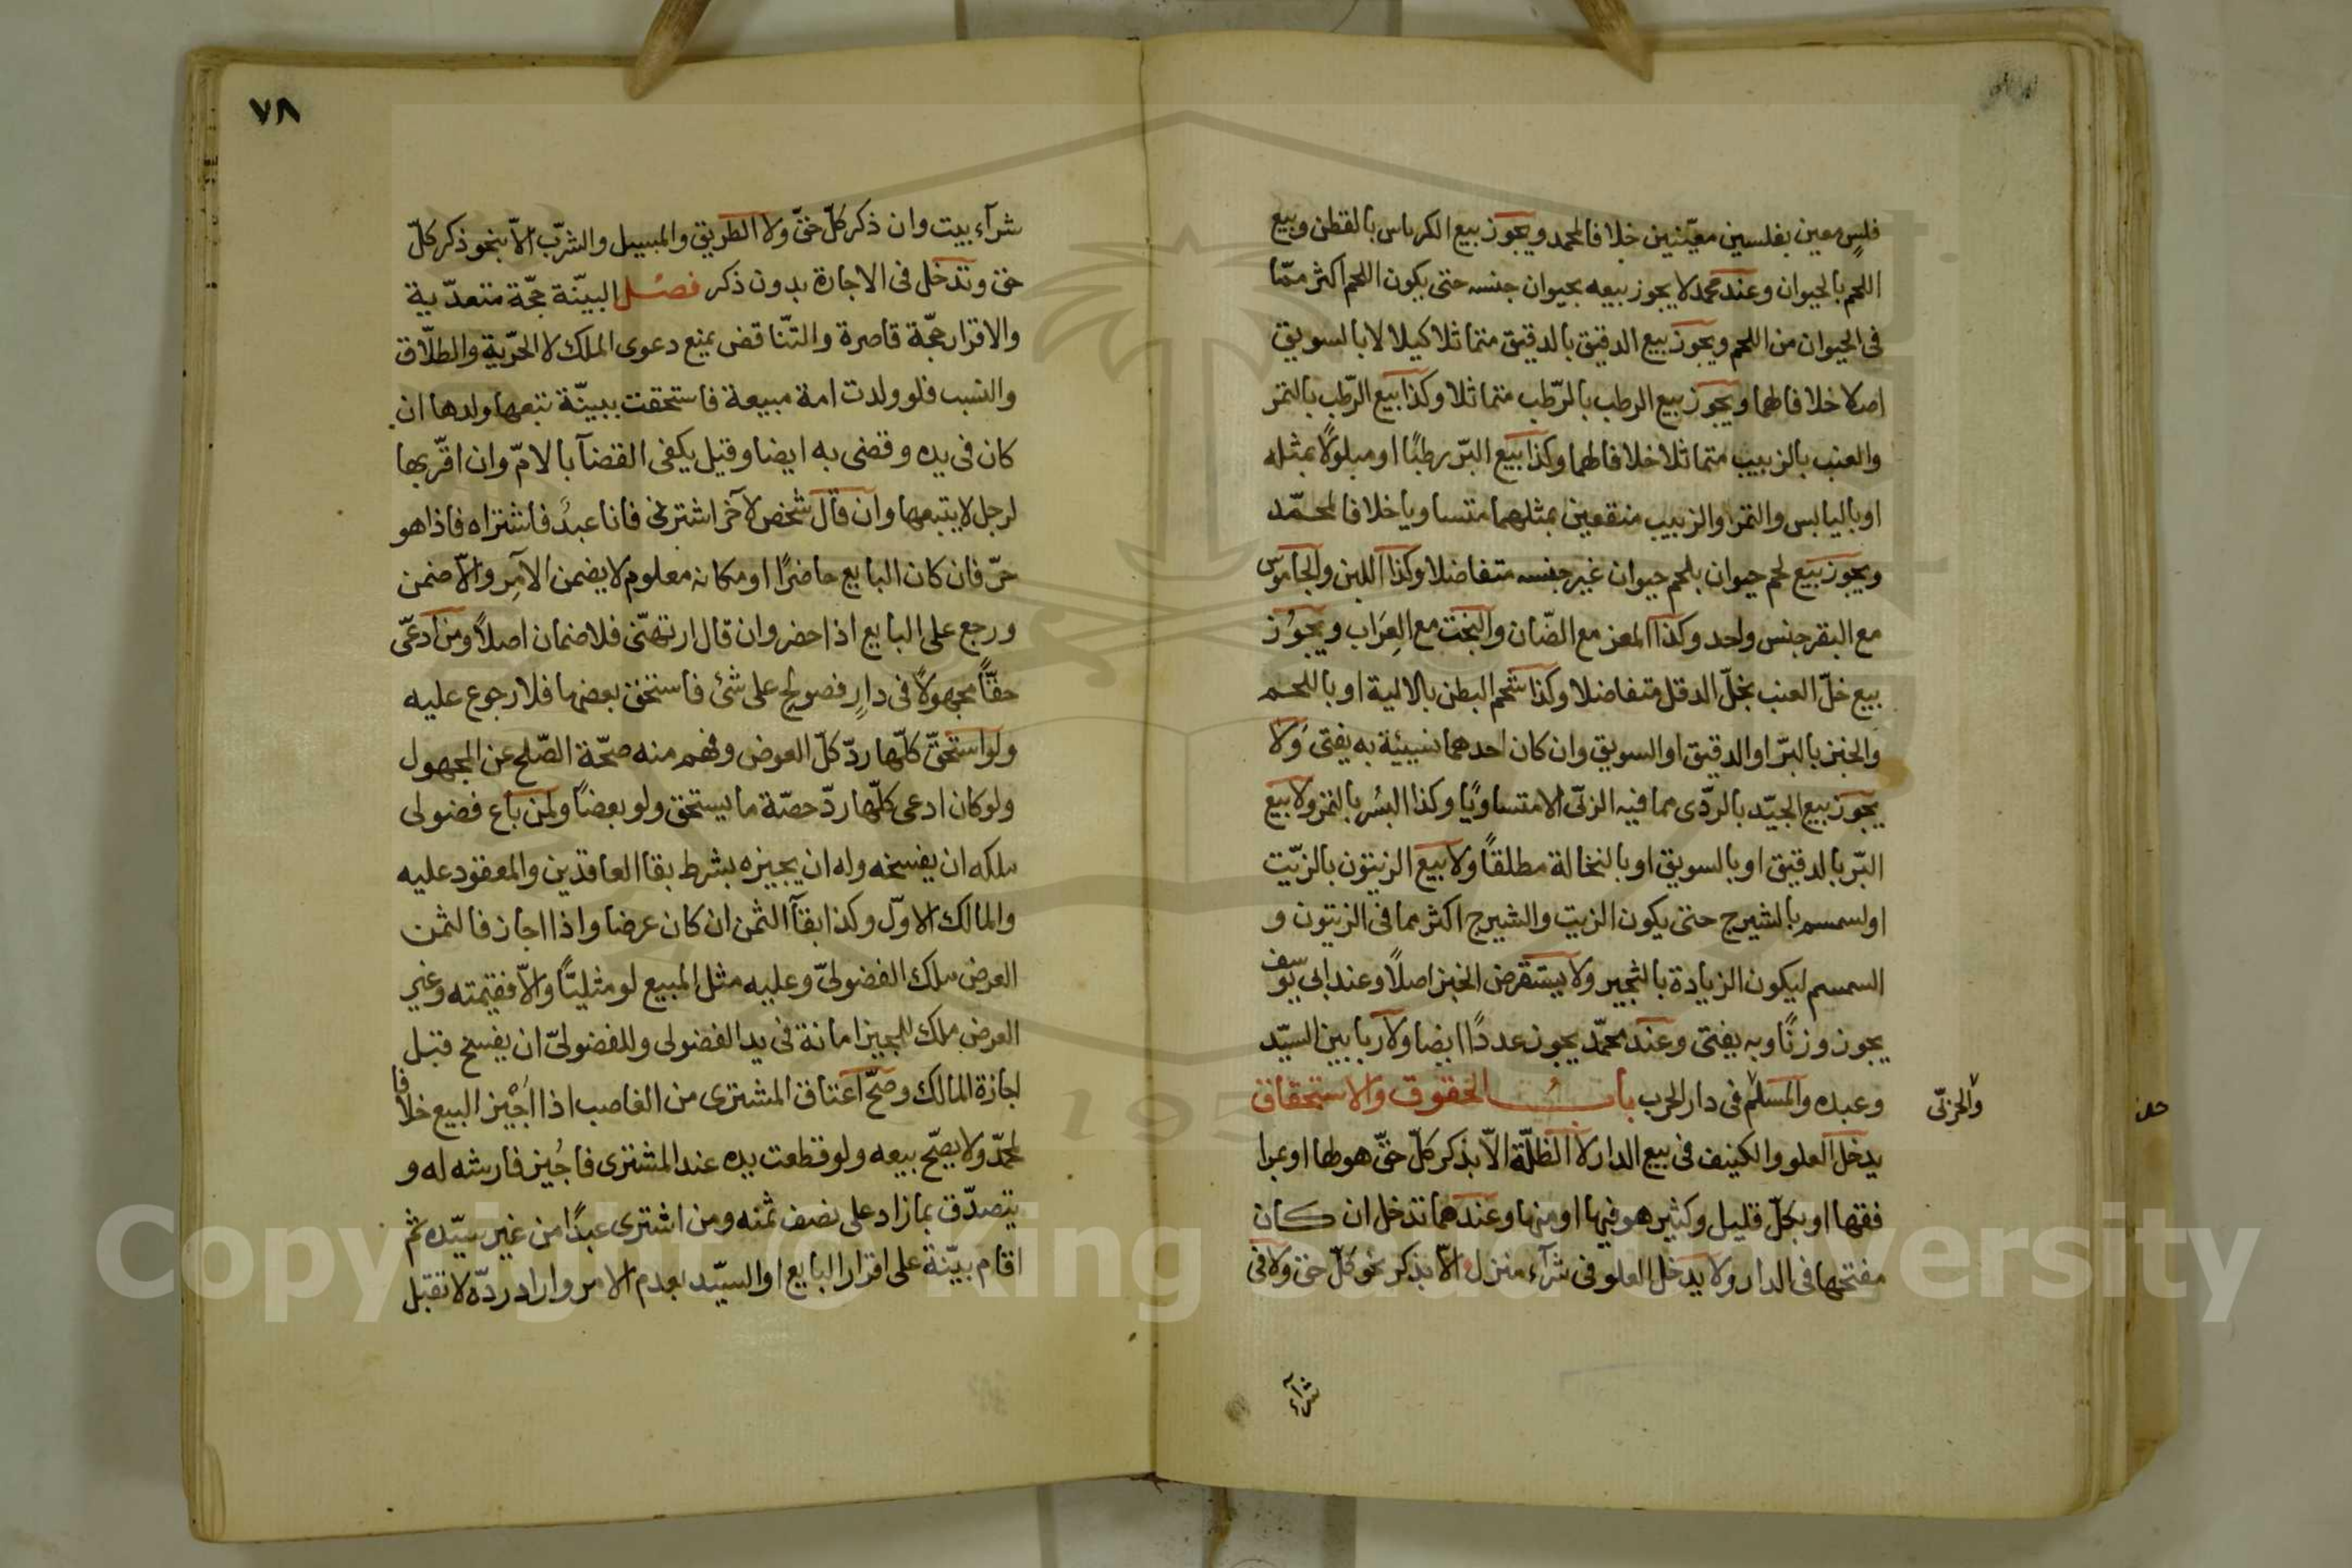 فلسٍ معين بفلسين معيّنين خلافا لمحمد ويجوز بيع الكرباس بالقطن وبيع
اللحم بالحيوان وعند محمد لا يجوز بيعه بحيوان جنسه حتى يكون اللحم اكثر ممّا
فى الحيوان من اللحم ويجوز بيع الدقيق بالدقيق متماثلا كيلا لا بالسويق
اصلا خلافا لهما ويجوز بيع الرطب بالرّطب متماثلا وكذا بيع الرّطب بالتمر
والعنب بالزبيب متماثلا خلافا لهما وكذا بيع البرّ رطبًا او مبلولًا بمثله
او باليابس والتمر او الزبيب منقعين بمثلهما متساويا خلافا لمحمّد
ويجوز بيع لحم حيوان بلحم حيوان غير جنسه متفاضلا وكذا اللبن والجاموس
مع البقر جنس واحد وكذا المعز مع الضّان والبخت مع العِرَاب ويجوز
بيع خلّ العنب بخلّ الدقل متفاضلا وكذا شحم البطن بالالية او باللحم
والخبز بالبرّ او الدقيق او السويق وان كان احدهما نسيئة به يفتى وَلا
يجوز بيع الجيّد بالردّى مما فيه الربى الا متساويًا وكذا البُسْر بالتمر ولا بيع
البّر بالدقيق او بالسويق او بالنخالة مطلقاً ولا بيع الزيتون بالزيّت
او لسمسم بالشيرج حتى يكون الزيت والشيرج اكثر مما فى الزيتون و
السمسم ليكون الزيادة بالثجير ولا يستقرض الخبز اصلاً وعند ابى يوسف
يجوز وزنًا وبه يفتى وعند محمّد يجوز عددًا ايضا ولا ربا بين السيّد
وعبده والمسلم في دار الحرب بابُ الحقوق والاستحقاق
والحربىّ
يدخل العلو والكنيف فى بيع الدار لا الظلّة الّا بذكر كلّ حقّ هو لها او بمرا
فقها او بكلّ قليل وكثير هو فيها او منها وعندهما تدخل ان كان
مفتحها فى الدار ولا يدخل العلو فى شرآء منزل الّا بذكر نحو كلّ حق ولا فى
شرآء
٧٨
شرآء بيت وان ذكر كلّ حقّ ولا الطريق والمسيل والشرّب الّا بنحو ذكر كلّ
حق وتدخل فى الاجارة بدون ذكر فصُل البيّنة حجّة متعدّية
والاقرار حجّة قاصرة والتّناقض يمنع دعوى الملك لا الحرّية والطلّاق
والنسب فلو ولدت امة مبيعة فاستحقت ببيّنة تبعها ولدها ان
كان فى يده وقضى به ايضا وقيل يكفى القضآ بالامّ وان اقّر بها
لرجل لا يتبعها وان قال شخص لآخر اشترنى فانا عبدٌ فاشتراه فاذا هو
حرّ فان كان البايع حاضرًا او مكانه معلوم لا يضمن الآمِر والّا ضمن
ورجع على البايع اذا حضر وان قال ارتهنّى فلا ضمان اصلاً ومن ادعّى
حقًّا مجهولًا فى دارٍ فصولح على شئ فاستحق بعضها فلا رجوع عليه
ولو استحقّ كلّها ردّ كلّ العوض وفهم منه صحّة الصّلح عن المجهول
ولو كان ادعى كلّها ردّ حصّة ما يستحق ولو بعضًا ولمن باع فضولى
ملكه ان يفسخه وله ان يجيزه بشرط بقا العاقدين والمعقود عليه
والمالك الاوّل وكذا بقآ الثمن ان كان عرضا واذا اجاز فالثمن
العرض ملك الفضولىّ وعليه مثل المبيع لو مثليًّا والّا فقيمته وغير
العرض ملك للمجيز امانة فى يد الفضولى وللفضولىّ ان يفسخ قبل
اجازة المالك وصحّ اعتاق المشترى من الغاصب اذا اُجْيز البيع خلافا
لمحمّد ولا يصحّ بيعه ولو قطعت يده عند المشترى فاجُيز فارشه له و
يتصدّق بما زاد على نصف ثمنه ومن اشترى عبدًا من غير سيّده ثم
اقام بيّنة على اقرار البايع او السيّد بعدم الامر واراد ردّه لا تقبل
Copyright © King Saud University